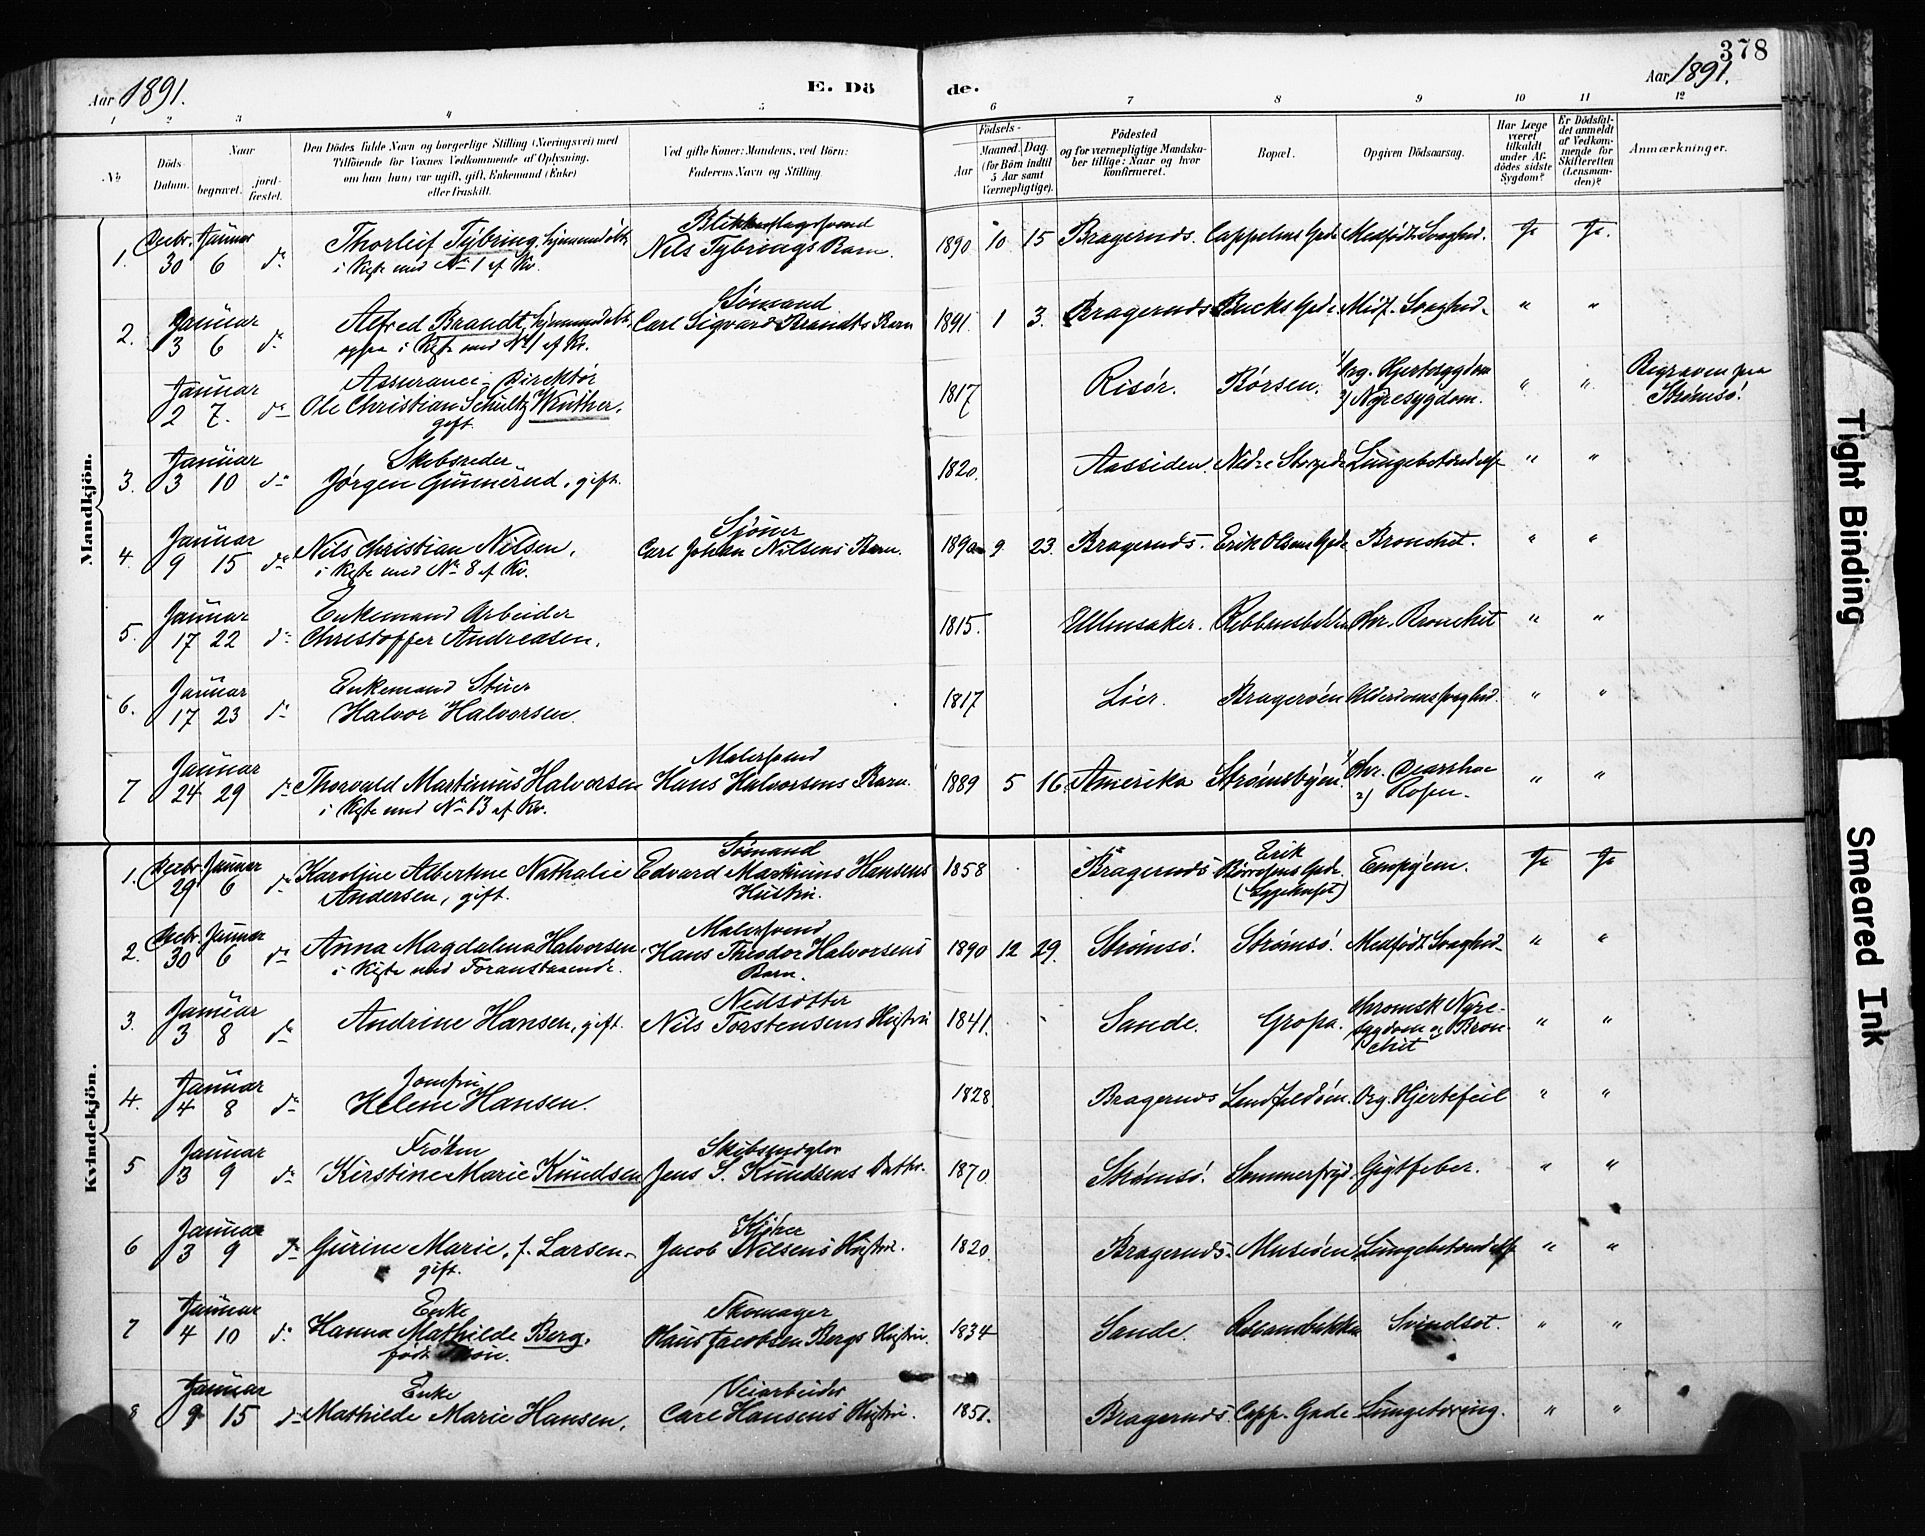 378
Aar 1891. E. Dö de. Aar 1891.
1 2 3 4 5 6 7 8 9 10 11 12
No
Döds-Datum.
Naar begravet. jord-fæstet.
Den Dödes fulde Navn og borgerlige Stilling (Næringsvei) med
Tilföiende for Voxnes Vedkommende af Oplysning,
om han (hun) var ugift, gift, Enkemand (Enke)
eller fraskilt.
Ved gifte Koner: Mandens, ved Börn:
Faderens Navn og Stilling.
Födsels-
Aar Maaned. Dag.
(for Börn indtil
5 Aar samt
Værnepligtige).
Födested
og for værnepligtige Mandska-
ber tillige: Naar og hvor
konfirmeret.
Bopæl.
Opgiven Dödsaarsag.
Har Læge
været
tilkaldt
under Af-
dödes sidste
Sygdom?
Er Dödsfal-
det anmeldt
af Vedkom-
mende for
Skifteretten
(Lensman-
den)?
Anmærkninger.
Mandkjön.
1. Decbr. 30 Januar 6 do Thorleif Tybring, hjemmedøbt, i Kiste med No 1 af Kv. Blikkenslagersvend Nils Tybrings Barn. 1890 10 15 Bragernæs. Cappelens Gade Medfødt Svaghed. Ja Ja.
2. Januar 3 6 do Alfred Brandt, hjemmedøbt, ogsaa i Kiste med No 1 af Kv. Sømand Carl Sigvard Brandts Barn 1891. 1 3. Bragernæs Bucks Gade Medf. Svaghed. " "
Januar 2 7. do Assurance-Direktør Ole Christian Schultz Winther. gift. 1817 Risør. Børsen. 1) Org. Hjertesygdom 2) Nyresygdom. " " Begraven paa Strømsö.
3. Januar 3 10 do Skibsreder Jørgen Gunnerud, gift. 1820. Aassiden. Nedre Storgade Lungebetændelse " "
4. Januar 9 15 do Nils Christian Nilsen, i Kiste med No 8 af Kv. Sjouer Carl Johan Nilsens Barn. 1890 9 23. Bragernæs. Erik Olsens Gade Bronchit. " "
5. Januar 17 22 do Enkemand Arbeider Christoffer Andreasen. 1815. Ullensaker. Ribbensbakken Chr. Bronchit " "
6. Januar 17 23 do Enkemand Stuer Halvor Halvorsen. 1817 Lier. Bragerøen Alderdomssvaghed. " "
7 Januar 24 29 do Thorvald Martinius Halvorsen i Kiste med No 13 af Kv. Malersvend Hans Halvorsens Barn. 1889 5 16. Amerika Strømsbyen. 1) Chr. Diarrhoe 2) Hosten. " "
Kvindekjön.
1. Decbr. 29 Januar 6 do Karoline Albertine Nathalie Andersen, gift. Sømand Edvard Martinius Hansens Hustru. 1858 Bragernæs Erik Børresens Gade. (Sygehuset) Empyem. Ja Ja
2. Decbr. 30 Januar 6 do Anna Magdalena Halvorsen i Kiste med Foranstaaende. Malersvend Hans Theodor Halvorsens Barn. 1890 12 29. Strømsö. Strømsö. Medfødt Svaghed " "
3. Januar 3 8 do Andrine Hansen, gift. Nedsætter Nils Torstensens Hustru 1841. Sande. Gropa. Chronisk Nyre-sygdom og Bron-chit " "
4. Januar 4 8 do Jomfru Helene Hansen. 1828. Bragernæs Landfaldøen. Org. Hjertefeil " "
5 Januar 3 9 do Frøken Kirstine Marie Knudsen Skibsmægler Jens S. Knudsens Datter. 1870. Strømsö. Sommerfryd. Gigtfeber. " "
6 Januar 3 9 do Gurine Marie, f. Larsen. gift. Kjører Jacob Nilsens Hustru. 1820. Bragernæs. Museøen. Lungebetændelse " "
7 Januar 4 10 do Enke Hanna Mathilde Berg, født Moen. Skomager Hans Jacobsen Bergs Hustru. 1834 Sande. Svindsot. " "
8 Januar 9 15 do Enke Mathilde Marie Hansen. Veiarbeider Carl Hansens Hustru. 1851. Bragernæs. Capp. Gade Lungetæring. " "
Tight Binding
Smeared Ink